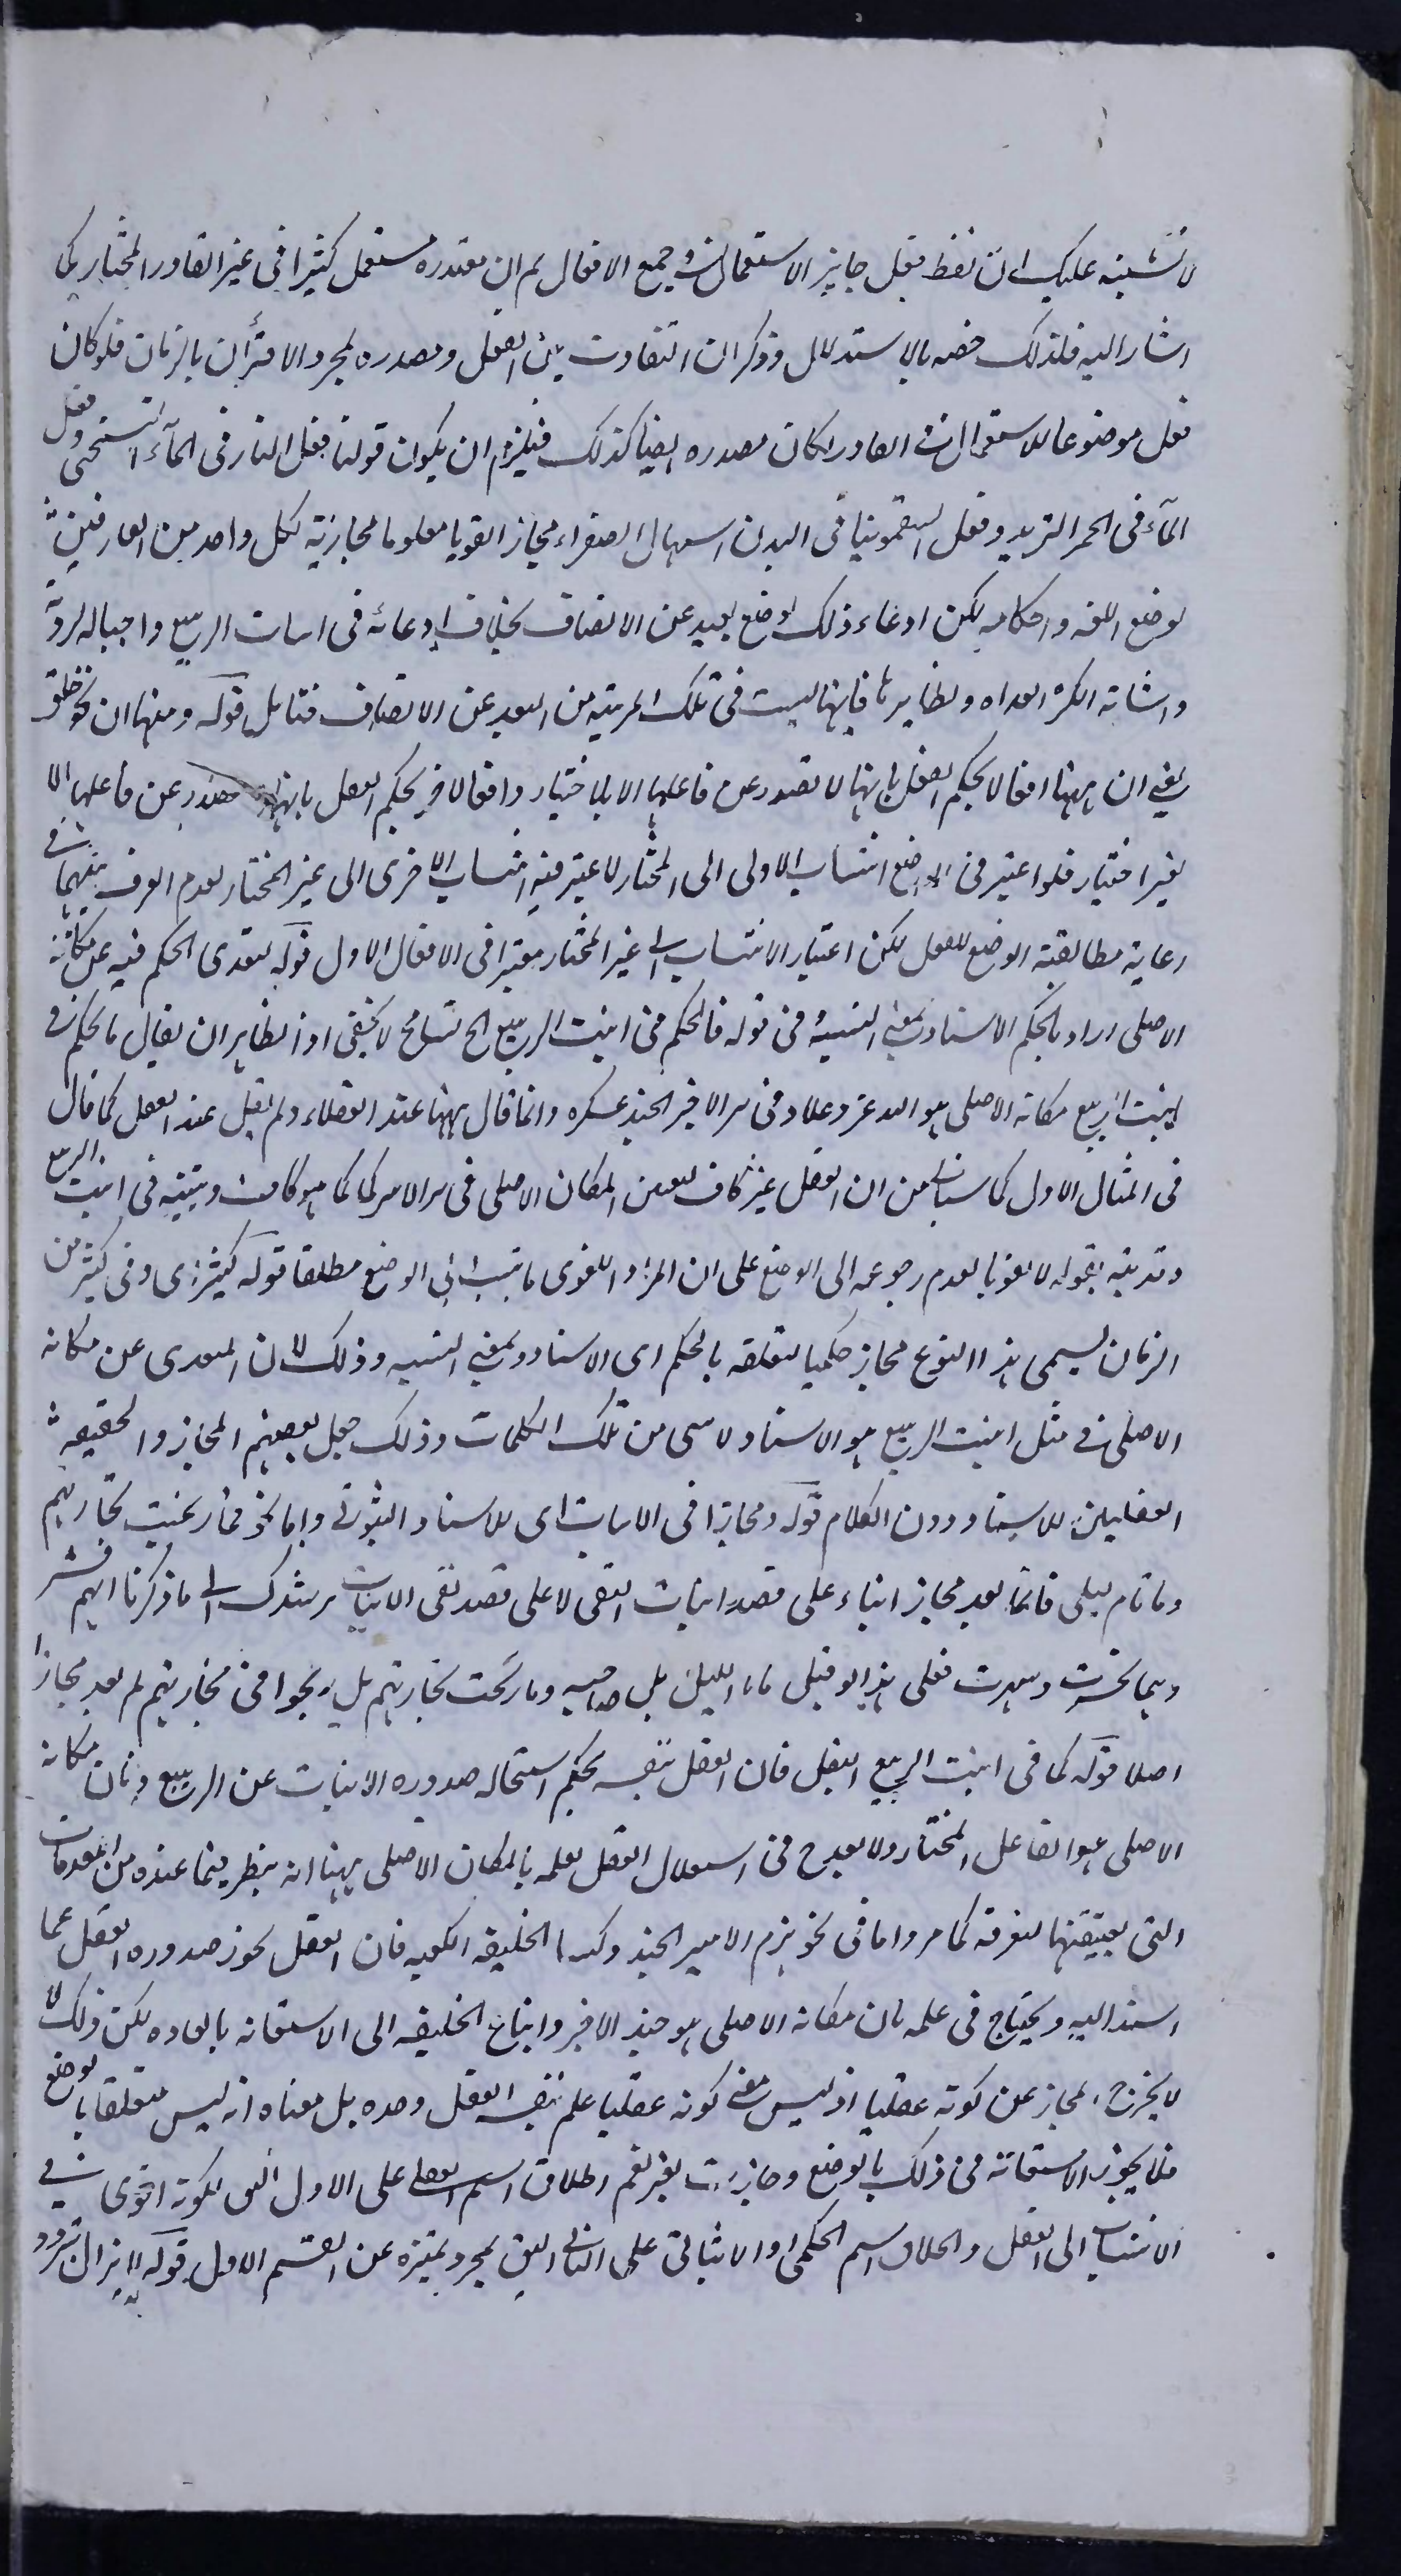 لا تشبيه عليك ان لفظ فعل جايز الاستعمال في جميع الافعال ثم ان مصدره مستعمل كثيرا في غير القادر المختار كما
اشار اليه فلذلك خصه بالاستدلال وذكر ان التفاوت بين الفعل ومصدره لمجرد الاقتران بالزمان فلو كان
فعل موضوعا للاستعمال في القادر لكان مصدره ايضا كذلك فيلزم ان يكون قولنا فعل النار في الماء التسخين وفعل
الماء في الحمر التبريد وفعل السقمونيا في البدن اسهال الصفراء مجاز القويا معلوما مجازيته لكل واحد من العارفين
بوضع اللغه واحكامه لكن ادعاء ذلك الوضع بعيد عن الانصاف بخلاف ادعائه في انبات الربيع واحياء الروية
واشابه الكر الغداه ونظايرها فانها ليست في تلك المرتبة من البعد عن الانصاف فتامل قوله ومنها ان نحو خلق
يعني ان ههنا افعالا يحكم العقل بانها لا تصدر عن فاعلها الا بالاختيار وافعالا اخر يحكم العقل بانها تصدر عن فاعلها بلا
بغير اختيار فلو اعتبر في الوضع انتساب الاولى الى المختار لاعتبر فيه انتساب الاخرى الى غير المختار لعدم الفرق بينهما في
رعاية مطابقة الوضع للعقل لكن اعتبار الانتساب الى غير المختار معتبرا في الافعال الاول قوله لتعدى الحكم فيه عن مكانه
الاصلي اراد بالحكم الاسناد بمعنى النسبة وفي قوله فالحكم في انبت الربيع الخ تسامح لا يخفى اذ الظاهر ان يقال فالحكم في
انبت الربيع مكانه الاصلي هو الله عز وعلا وفي هزم الامير الجند عسكره وانما قال ههنا عند العقلاء ولم يقل عند العقل كما قال
في المثال الاول كما سياتي من ان العقل غير كاف لتعيين المكان الاصلي في هزم الامير كما هو كاف وتنبيه في انبت الربيع
وقد نبه بقوله لا لغويا لعدم رجوعه الى الوضع على ان المراد اللغوى ما ينسب الى الوضع مطلقا قوله كثيرا اى وفي كثير من
الزمان يسمى هذا النوع مجاز حكميا لتعلقه بالحكم اى الاسناد وبمعنى النسبه وذلك لان المتعدى عن مكانه
الاصلي في مثل انبت الربيع هو الاسناد لا شى من تلك الكلمات وذلك جعل بعضهم المجاز والحقيقة
العقليين للاسناد دون الكلام قوله ومجازا في الاثبات اى للاسناد الثبوتى واما نحو فما ربحت تجارتهم
وما نام ليلى فانما يعد مجاز ابناء على قصد اثبات النفي لا على قصد نفي الاثبات يرشدك الى ما ذكرنا انهم فسر
وهما بخسرت وسهرت فعلى هذا لو قيل ما نام الليل بل صاحبه وما ربحت تجارتهم بل ربحوا في تجارتهم لم يعد مجازا
اصلا قوله كما في انبت الربيع البقل فان العقل نفسه يحكم استحاله صدوره الانبات عن الربيع وبان مكانه
الاصلي هو الفاعل المختار ولا يقدح في استقلال العقل لعلمه بالمكان الاصلي ههنا انه ينظر فيما عنده من المقدمات
التى يعينها لمعرفته كما مر واما في نحو هزم الامير الجند وكسا الخليفه الكعبه فان العقل يجوز صدوره الفعل عما
استند اليه ويحتاج في علمه بان مكانه الاصلي هو جند الامير واتباع الخليفه الى الاستعانه بالعاده لكن ذلك لا
لا يخرج المجاز عن كونه عقليا اذ ليس معنى كونه عقليا علم نفس العقل وحده بل معناه انه ليس متعلقا بالوضع
فلا يجوز الاستعانه في ذلك بالوضع وجازت بغيره نعم اطلاق اسم العقلي على الاول اليق لكونه اقوى في
الانتساب الى العقل واطلاق اسم الحكمى او الاثباتى على الثانى اليق بمجرد تميزه عن القسم الاول قوله لا يزال تردد